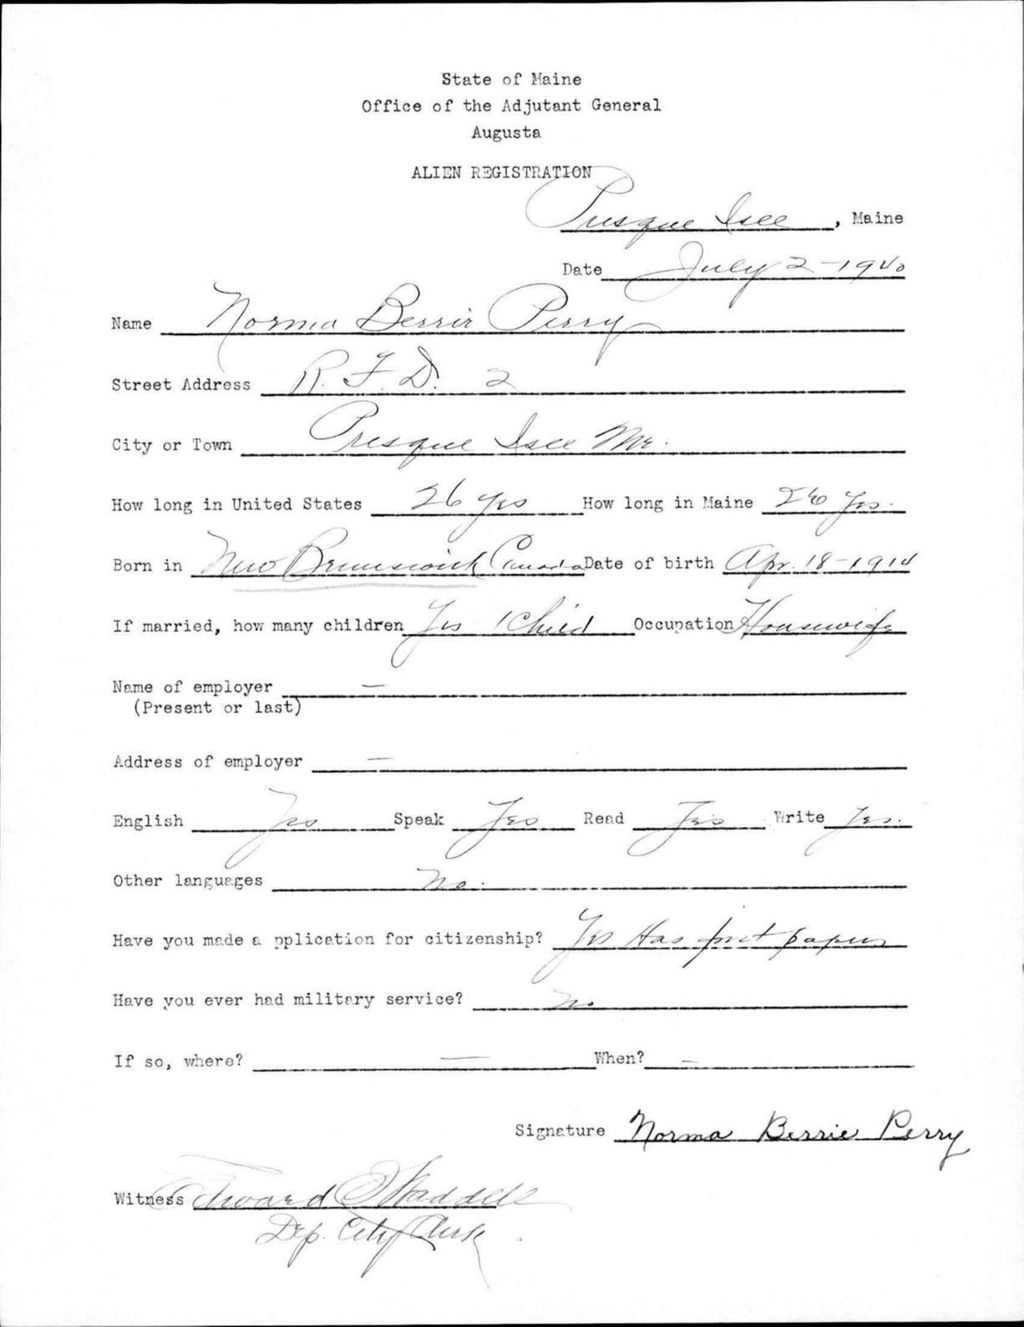 State of Maine
Office of the Adjutant General
Augusta
ALIEN REGISTRATION
Presque Isle, Maine
Date July 2 - 1940
Name Norma Berrie Perry
Street Address R. F. D. 2
City or Town Presque Isle Me.
How long in United States 26 yrs How long in Maine 26 yrs.
Born in New Brunswick Canada Date of birth Apr. 18 - 1914
If married, how many children Yes 1 Child Occupation Housewife
Name of employer —
(Present or last)
Address of employer —
English Yes Speak Yes Read Yes Write Yes.
Other languages No.
Have you made a pplication for citizenship? Yes Has first papers
Have you ever had military service? No
If so, where? — When? —
Signature Norma Berrie Perry
Witness Edward Waddell
Dep. City Clerk